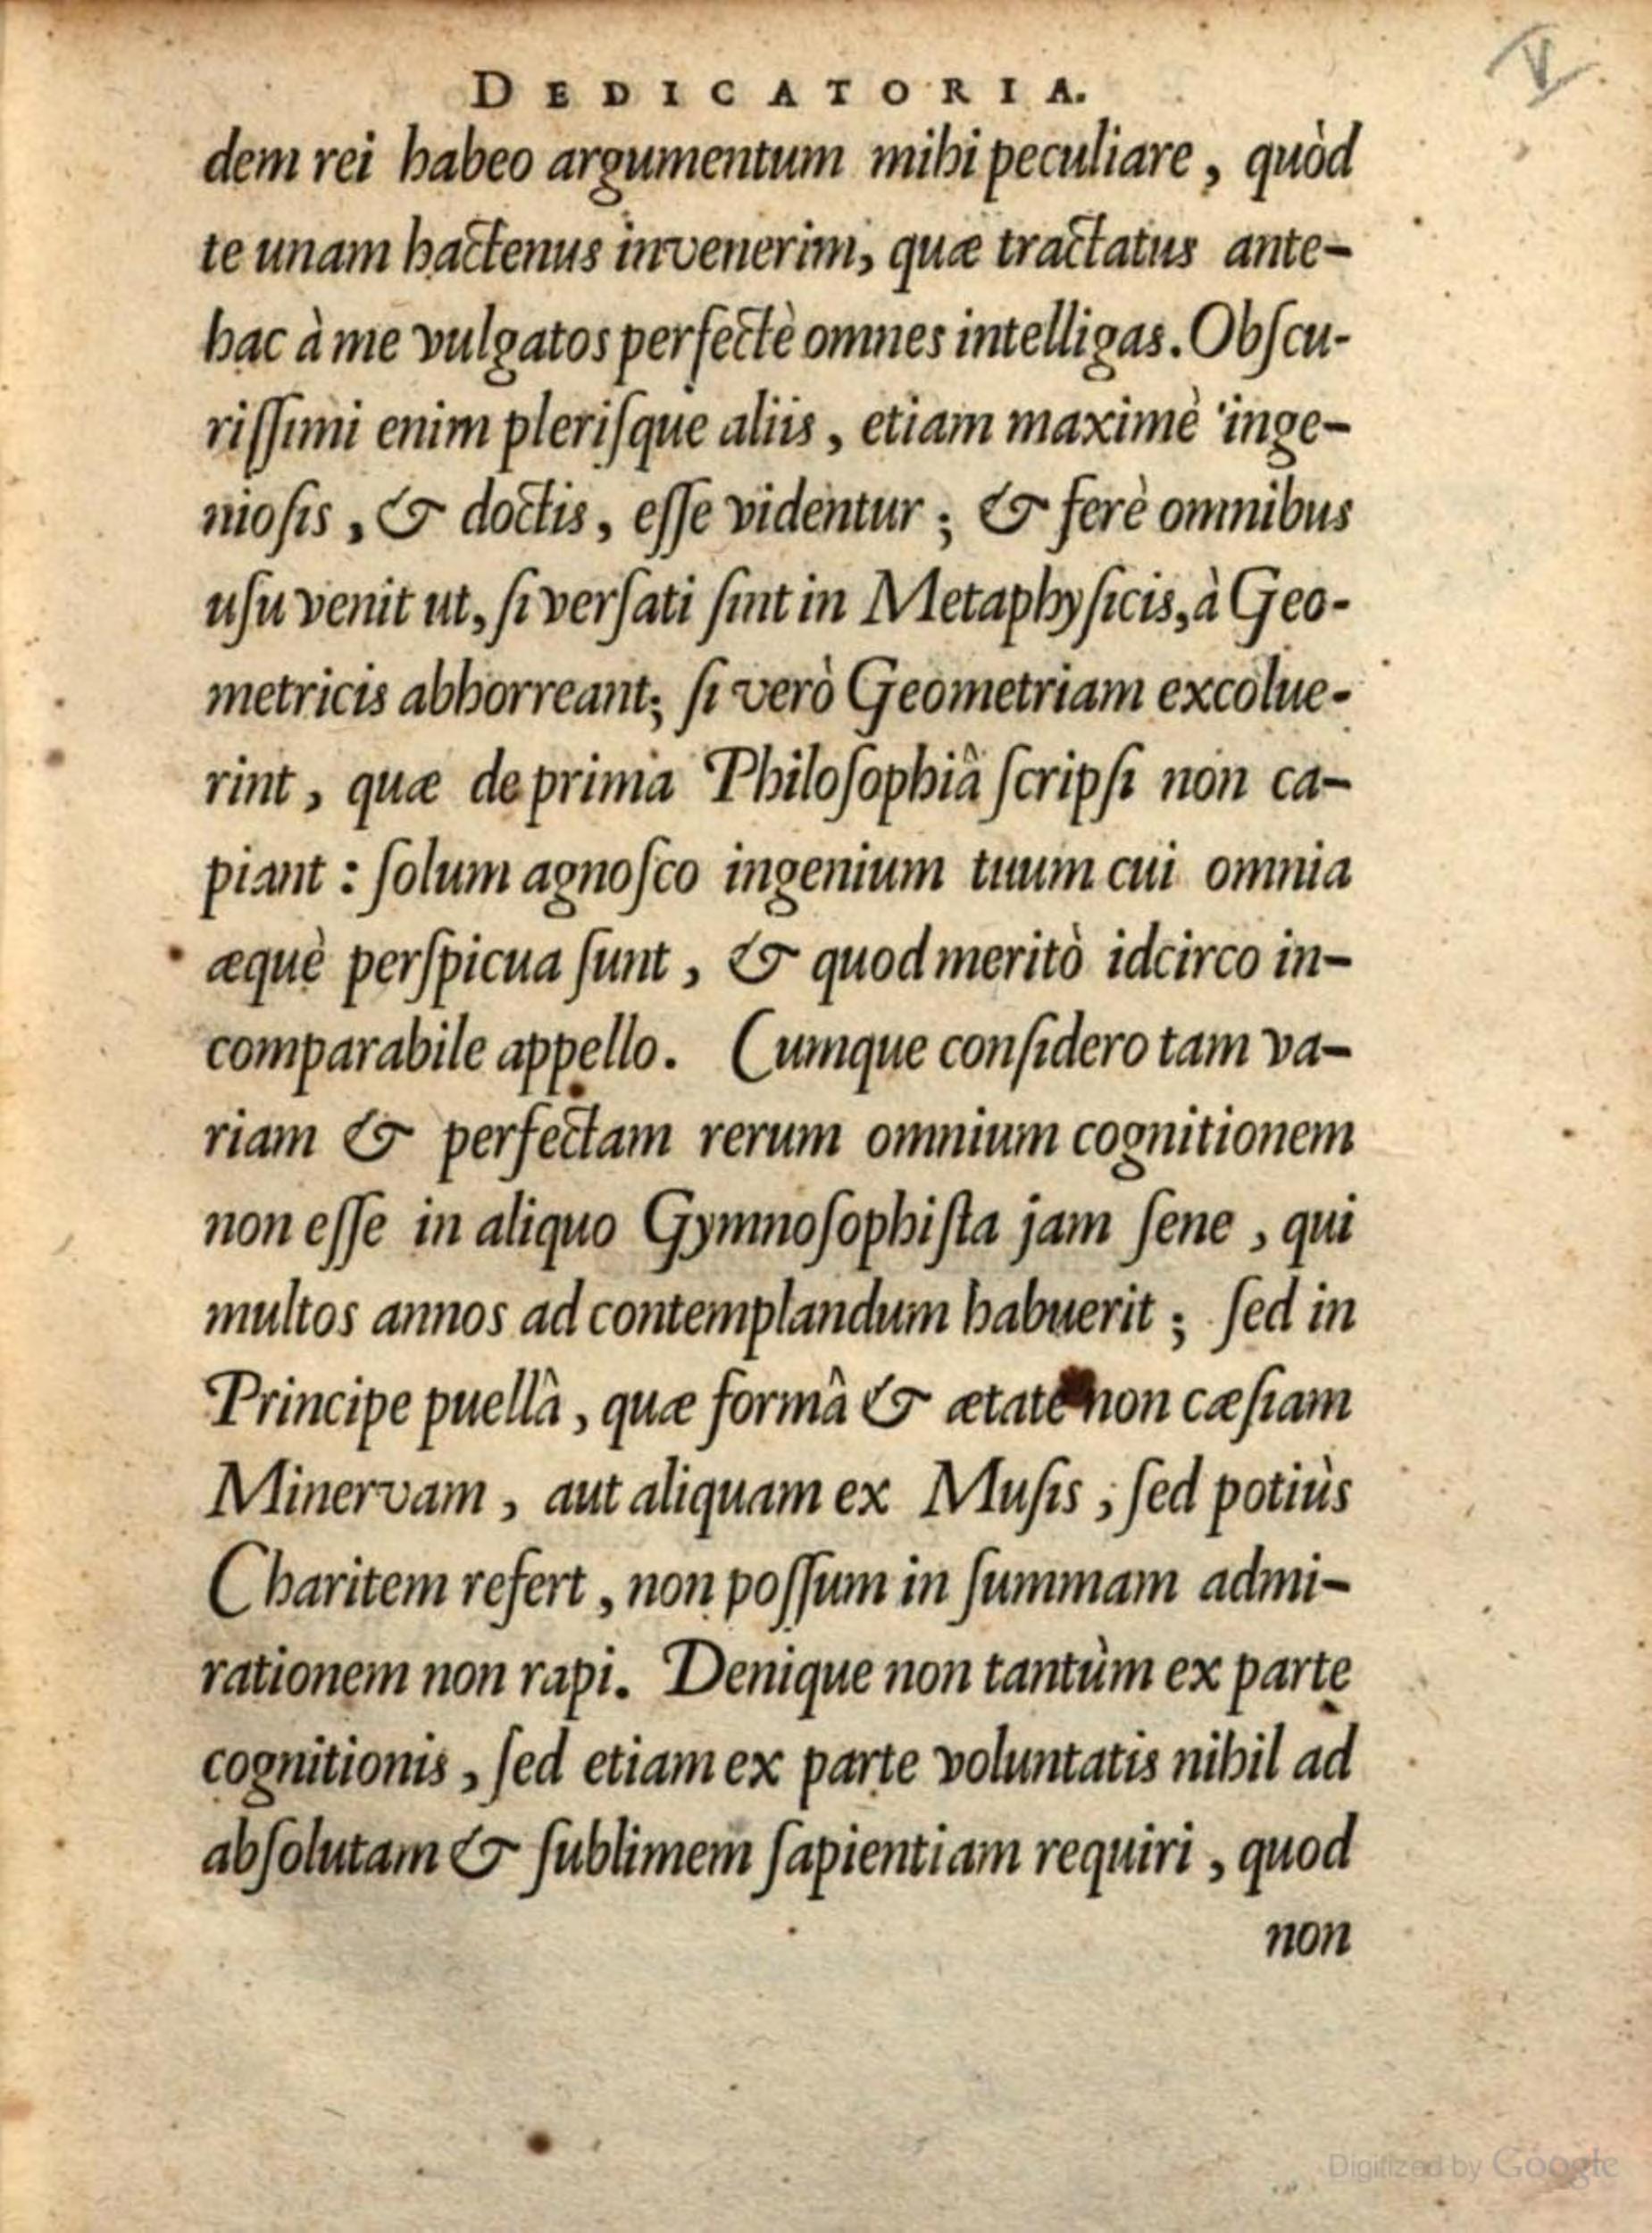 DEDICATORIA.
V
dem rei habeo argumentum mihi peculiare, quòd
te unam hactenus invenerim, quæ tractatus ante-
hac à me vulgatos perfectè omnes intelligas. Obſcu-
riſſimi enim pleriſque aliis, etiam maximè inge-
nioſis, & doctis, eſſe videntur; & ferè omnibus
uſu venit ut, ſi verſati ſint in Metaphyſicis, à Geo-
metricis abhorreant; ſi verò Geometriam excolue-
rint, quæ de prima Philoſophiâ ſcripſi non ca-
piant: ſolum agnoſco ingenium tuum cui omnia
æquè perſpicua ſunt, & quod meritò idcirco in-
comparabile appello. Cumque conſidero tam va-
riam & perfectam rerum omnium cognitionem
non eſſe in aliquo Gymnoſophiſta jam ſene, qui
multos annos ad contemplandum habuerit; ſed in
Principe puellâ, quæ formâ & ætate non cæſiam
Minervam, aut aliquam ex Muſis, ſed potiùs
Charitem refert, non poſſum in ſummam admi-
rationem non rapi. Denique non tantùm ex parte
cognitionis, ſed etiam ex parte voluntatis nihil ad
abſolutam & ſublimem ſapientiam requiri, quod
non
Digitized by Google